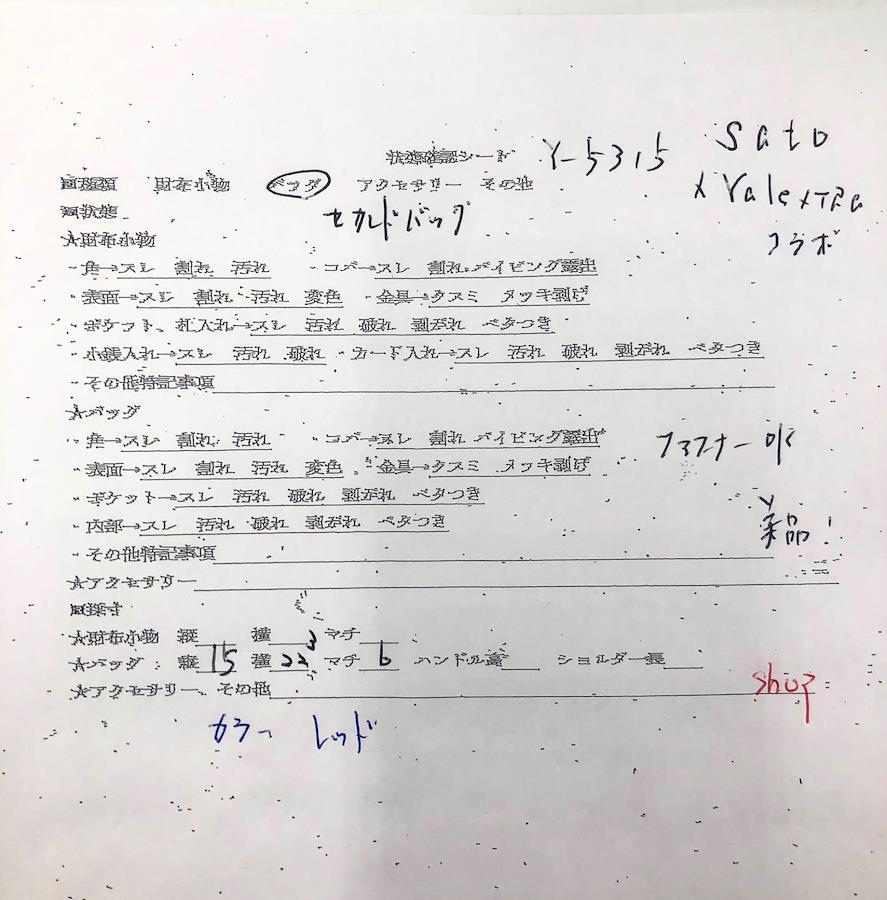 状態確認シート Y-5315 Sato
■種類 財布小物 バッグ アクセサリー その他 × Valextra
■状態 セカンドバッグ コラボ
★財布小物
・角→スレ 割れ 汚れ ・コバ→スレ 割れ パイピング露出
・表面→スレ 割れ 汚れ 変色 ・金具→クスミ メッキ剥げ
・ポケット、札入れ→スレ 汚れ 破れ 剥がれ ベタつき
・小銭入れ→スレ 汚れ 破れ ・カード入れ→スレ 汚れ 破れ 剥がれ ベタつき
・その他特記事項
★バッグ
・角→スレ 割れ 汚れ ・コバ→スレ 割れ パイピング露出 ファスナー OK
・表面→スレ 割れ 汚れ 変色 ・金具→クスミ メッキ剥げ
・ポケット→スレ 汚れ 破れ 剥がれ ベタつき
・内部→スレ 汚れ 破れ 剥がれ ベタつき 美品!
・その他特記事項
★アクセサリー
■採寸
★財布小物 縦 横 マチ
★バッグ:縦 15 横 22 マチ 6 ハンドル高 ショルダー長
★アクセサリー、その他 shop
カラー レッド